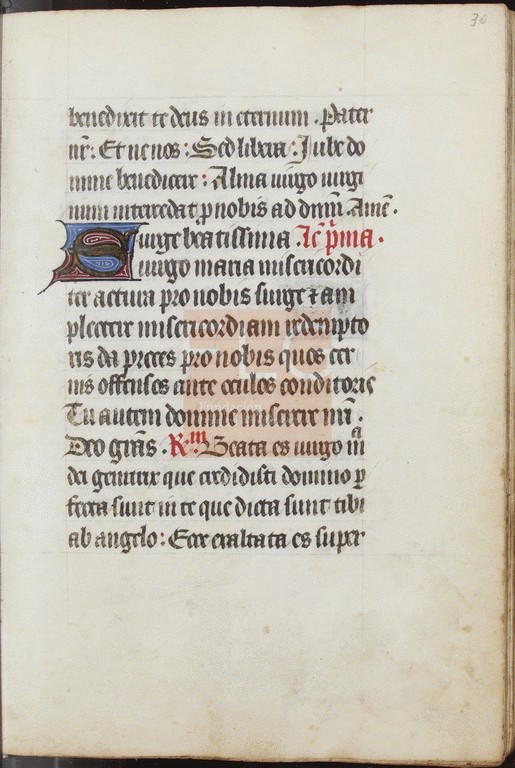 30
benedixit te deus in eternum. Pater
nr̄: Et ne nos: Sed libera: Iube do
mine benedicere: Alma uirgo uirgi
num intercedat ꝓ nobis ad dnm̄. Amē.
Surge beatissima Lc̄ p̄ma.
uirgo maria misericordi
ter actura pro nobis surge ⁊ am
plectere misericordiam redempto
ris da preces pro nobis quos cer
nis offensos ante oculos conditoris
Tu autem domine miserere nr̄i.
Deo grās. R̄m. Beata es uirgo mᵃ
dei genitrix que credidisti domino ꝑ
fecta sunt in te que dicta sunt tibi
ab angelo: Ecce exaltata es super